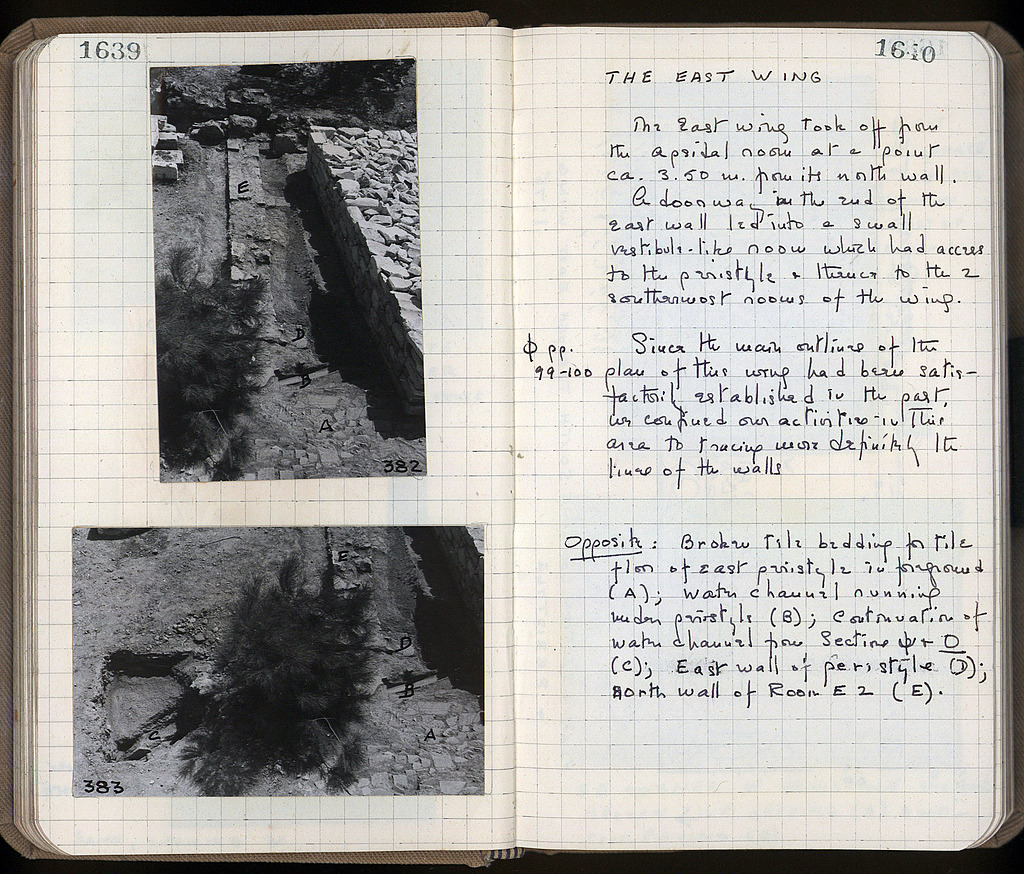 1639
E
D
B
A
382
E
D
B
C
A
383
1640
THE EAST WING
The East wing took off from
the apsidal room at a point
ca. 3.50 m. from its north wall.
A doorway in the end of the
east wall led into a small
vestibule-like room which had access
to the peristyle & thence to the 2
southernmost rooms of the wing.
Φ pp.
99-100
Since the main outlines of the
plan of this wing had been satis-
factorily established in the past,
we confined our activities in this
area to tracing more definitely the
lines of the walls
Opposite: Broken tile bedding for tile
floor of east peristyle in foreground
(A); water channel running
under peristyle (B); Continuation of
water channel from Section O
(C); East wall of peristyle (D);
north wall of Room E 2 (E).